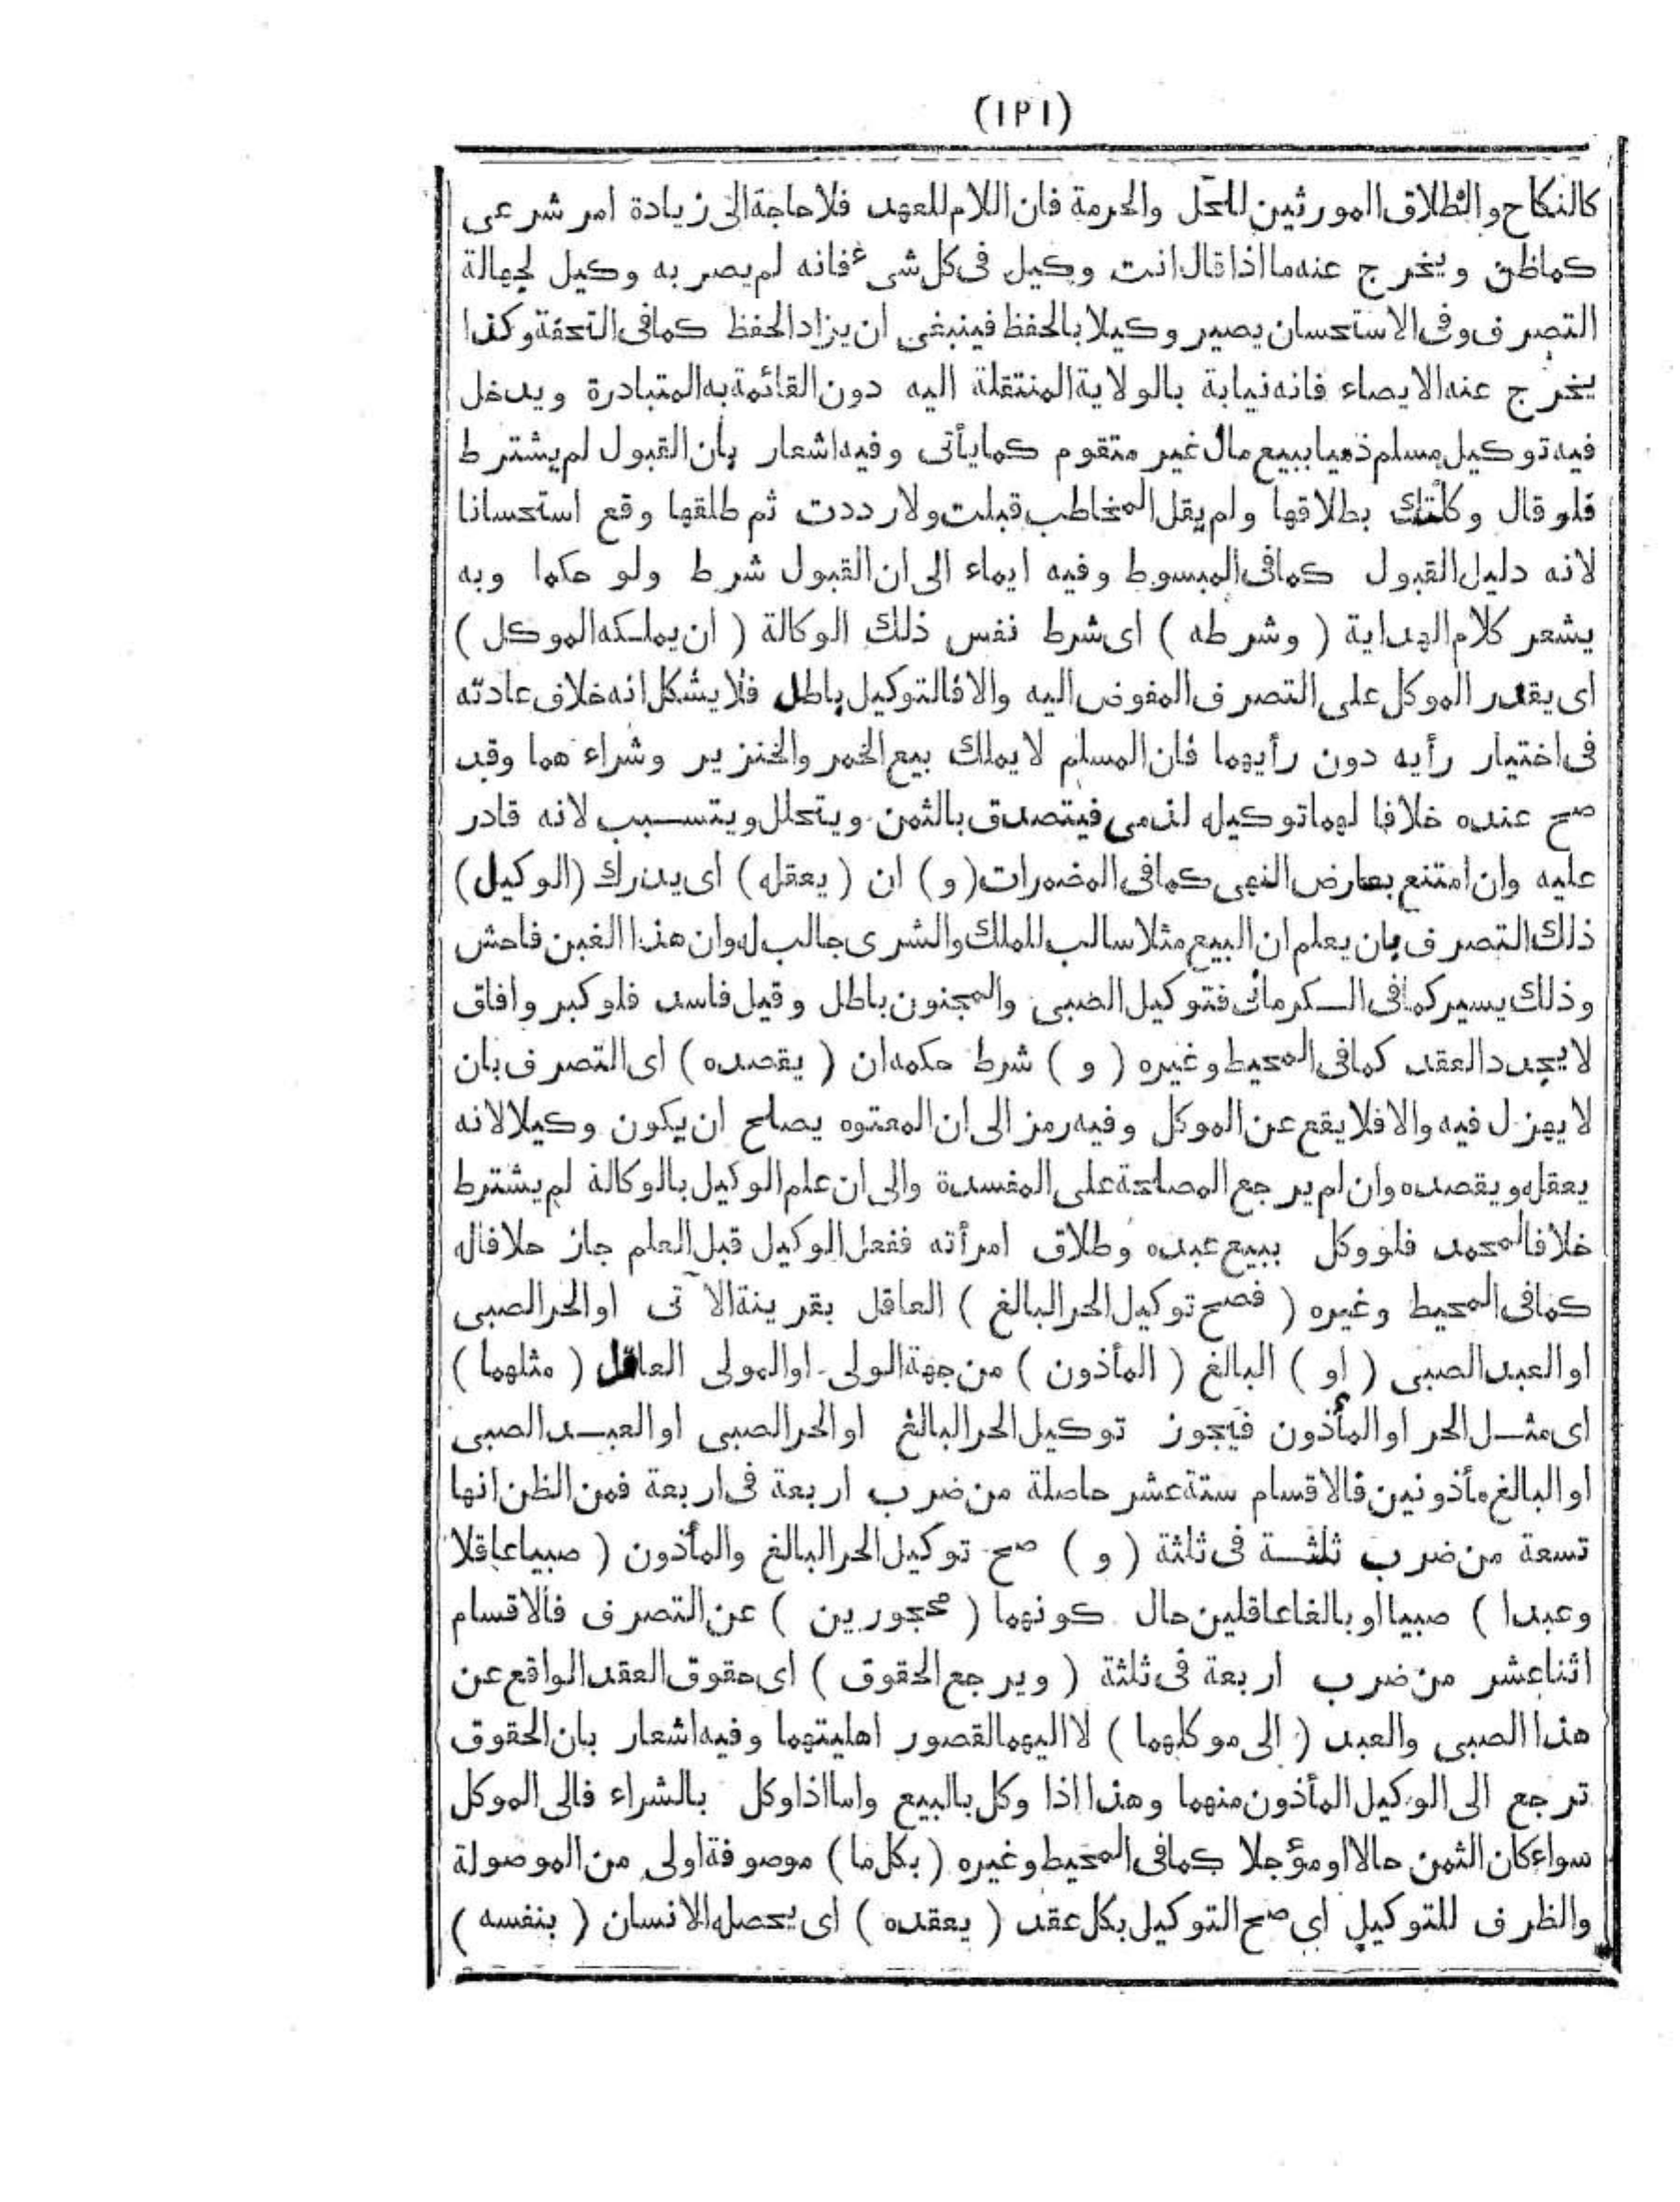 (١٩١)
كالنكاح والطلاق المورثين للحل والحرمة فان اللام للعهد فلا حاجة الى زيادة امر شرعى
كما ظن ويخرج عنه ما اذا قال انت وكيل فى كل شىء فانه لم يصر به وكيل لجهالة
التصرف وفى الاستحسان يصير وكيلا بالحفظ فينبغى ان يزاد الحفظ كما فى التحفة وكذا
يخرج عنه الايصاء فانه نيابة بالولاية المنتقلة اليه دون القائمة به المتبادرة ويدخل
فيه توكيل مسلم ذميا ببيع مال غير متقوم كما يأتى وفيه اشعار بان القبول لم يشترط
فلو قال وكلتك بطلاقها ولم يقل المخاطب قبلت ولا رددت ثم طلقها وقع استحسانا
لانه دليل القبول كما فى المبسوط وفيه ايماء الى ان القبول شرط ولو حكما وبه
يشعر كلام الهداية ( وشرطه ) اى شرط نفس ذلك الوكالة ( ان يملكه الموكل )
اى يقدر الموكل على التصرف المفوض اليه والا فالتوكيل باطل فلا يشكل انه خلاف عادته
فى اختيار رأيه دون رأيهما فان المسلم لا يملك بيع الخمر والخنزير وشراءهما وقد
صح عنده خلافا لهما توكيله لذمى فيتصدق بالثمن ويتحلل ويتسبب لانه قادر
عليه وان امتنع بعارض النهى كما فى المضمرات (و) ان ( يعقله ) اى يدرك (الوكيل)
ذلك التصرف بان يعلم ان البيع مثلا سالب للملك والشرى جالب له وان هذا الغبن فاحش
وذلك يسير كما فى الكرمانى فتوكيل الصبى والمجنون باطل وقيل فاسد فلو كبر وافاق
لا يجدد العقد كما فى المحيط وغيره ( و ) شرط حكمه ان ( يقصده ) اى التصرف بان
لا يهزل فيه والا فلا يقع عن الموكل وفيه رمز الى ان المعتوه يصلح ان يكون وكيلا لانه
يعقله ويقصده وان لم يرجع المصلحة على المفسدة والى ان علم الوكيل بالوكالة لم يشترط
خلافا لمحمد فلو وكل ببيع عبده وطلاق امرأته ففعل الوكيل قبل العلم جاز خلافا له
كما فى المحيط وغيره ( فصح توكيل الحر البالغ ) العاقل بقرينة الآتى او الحر الصبى
او العبد الصبى ( او ) البالغ ( المأذون ) من جهة الولى او المولى العاقل ( مثلهما )
اى مثل الحر او المأذون فيجوز توكيل الحر البالغ او الحر الصبى او العبد الصبى
او البالغ مأذونين فالاقسام ستة عشر حاصلة من ضرب اربعة فى اربعة فمن الظن انها
تسعة من ضرب ثلثة فى ثلثة ( و ) صح توكيل الحر البالغ والمأذون ( صبيا عاقلا
وعبدا ) صبيا او بالغا عاقلين حال كونهما ( محجورين ) عن التصرف فالاقسام
اثنا عشر من ضرب اربعة فى ثلثة ( ويرجع الحقوق ) اى حقوق العقد الواقع عن
هذا الصبى والعبد ( الى موكلهما ) لا اليهما لقصور اهليتهما وفيه اشعار بان الحقوق
ترجع الى الوكيل المأذون منهما وهذا اذا وكل بالبيع واما اذا وكل بالشراء فالى الموكل
سواء كان الثمن حالا او مؤجلا كما فى المحيط وغيره ( بكل ما ) موصوفة اولى من الموصولة
والظرف للتوكيل اى صح التوكيل بكل عقد ( يعقده ) اى يحصله الانسان ( بنفسه )